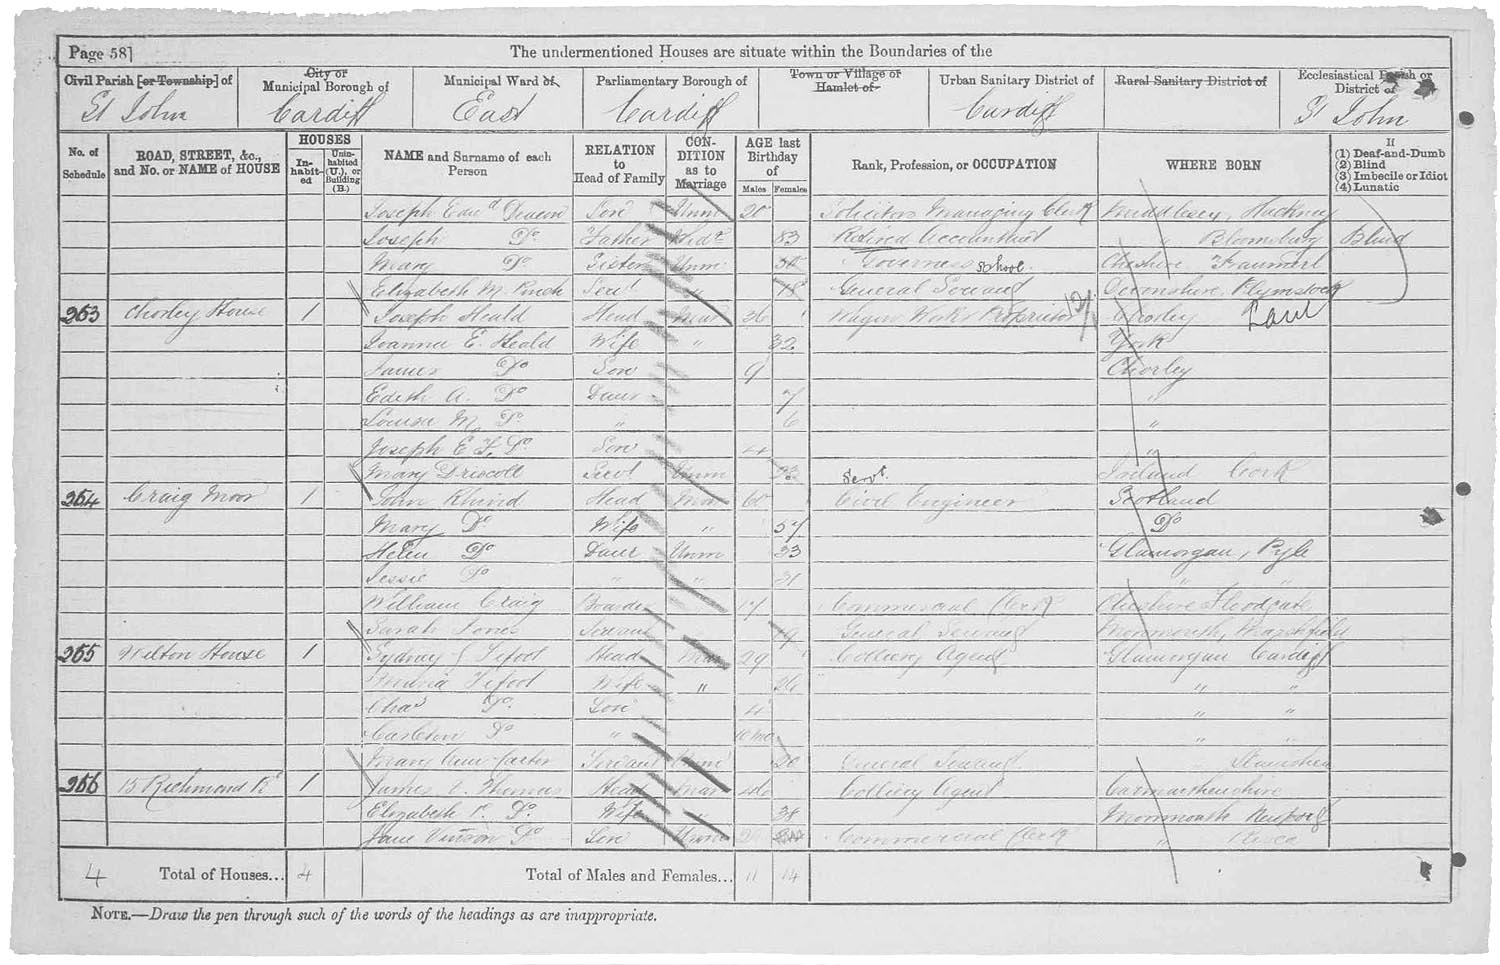 Page 58]
The undermentioned Houses are situate within the Boundaries of the
Civil Parish [or Township] of
St John
City or Municipal Borough of
Cardiff
Municipal Ward of
East
Parliamentary Borough of
Cardiff
Town or Village or Hamlet of
Urban Sanitary District of
Cardiff
Rural Sanitary District of
Ecclesiastical Parish or District of
St John
No. of Schedule
ROAD, STREET, &c., and No. or NAME of HOUSE
HOUSES
In-habit-ed
Unin-habited (U.), or Building (B.)
NAME and Surname of each Person
RELATION to Head of Family
CON-DITION as to Marriage
AGE last Birthday of
Males Females
Rank, Profession, or OCCUPATION
WHERE BORN
If
(1) Deaf-and-Dumb
(2) Blind
(3) Imbecile or Idiot
(4) Lunatic
Joseph Edwd Deacon Son Unm 20 Solicitors Managing Clerk Middlesex, Hackney
Joseph Do Father Widr 83 Retired Accountant " Bloomsbury Blind
Mary Do Sister Unm Governess School Cheshire
Elizabeth M. Servt " 18 General Servant Devonshire Plymstock
253 Chorley House 1 Joseph Heald Head Mar 36 Wagon Works Proprietor Chorley
Joanna E. Heald Wife " 32 York
James Do Son 9 Chorley
Edith A. Do Daur 7 "
Louisa M. Do " 6 "
Joseph E. F. Do Son 4 "
Mary Driscoll Servt Unm 23 Servt. Ireland Cork
254 Craig Moor 1 John Head Mar 60 Civil Engineer Scotland
Mary Do Wife " 57 Do
Helen Do Daur Unm 33 Glamorgan, Pyle
Jessie Do " " 31 " "
William Craig Boarder 17 Commercial Clerk Cheshire
Sarah Jones Servant 19 General Servant Monmouth, Marshfield
255 Wilton House 1 Sydney Head Mar 29 Colliery Agent Glamorgan Cardiff
Wife " 26 " "
Chas Do Son 4 " "
Carlton Do " 10 mo " "
Mary Ann Servant Unm 20 General Servant "
256 15 Richmond Rd 1 James Thomas Head Mar 46 Colliery Agent Carmarthenshire
Elizabeth Do Wife " 38 Monmouth Newport
Do Son Unm 20 Commercial Clerk " Risca
4 Total of Houses... 4 Total of Males and Females... 11 14
NOTE.—Draw the pen through such of the words of the headings as are inappropriate.